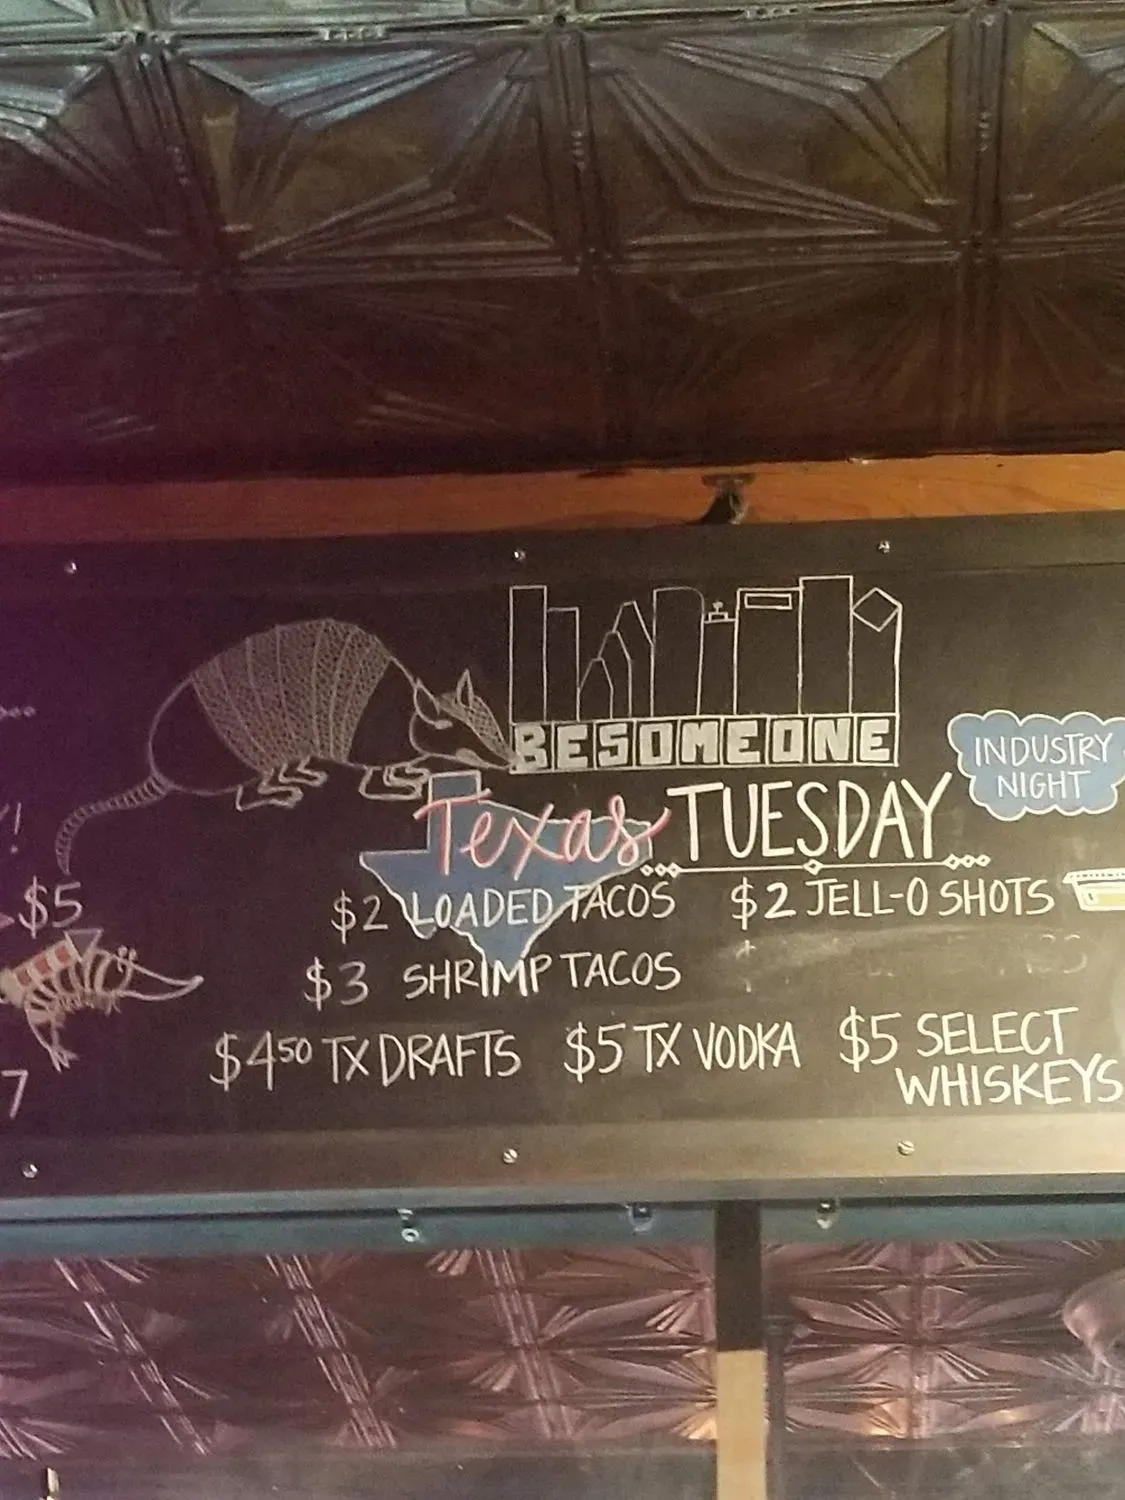 BESOMEONE
INDUSTRY
NIGHT
Texas TUESDAY
$5
$2 LOADED TACOS $2 JELL-O SHOTS
$3 SHRIMP TACOS
$4.50 TX DRAFTS $5 TX VODKA $5 SELECT
WHISKEYS
7